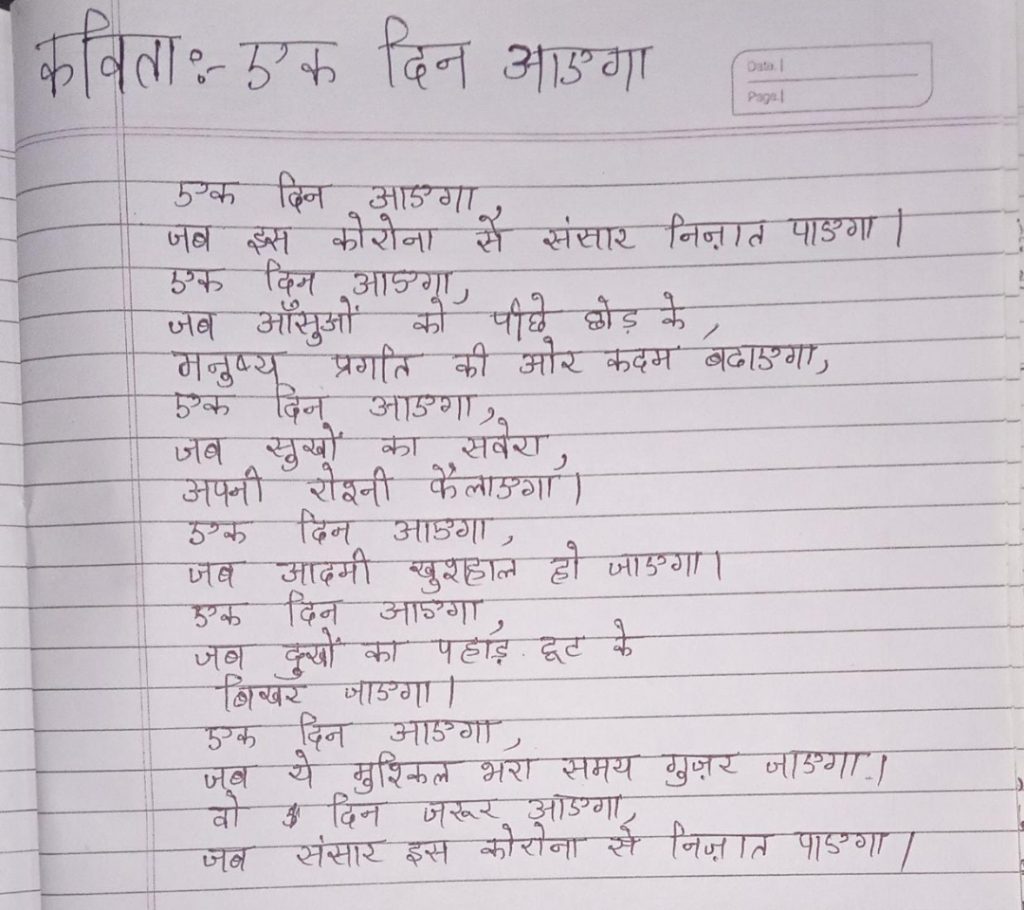 कविता:- एक दिन आएगा
Date.
Page.
एक दिन आएगा,
जब इस कोरोना से संसार निज़ात पाएगा।
एक दिन आएगा,
जब आँसुओं को पीछे छोड़ के,
मनुष्य प्रगति की ओर कदम बढाएगा,
एक दिन आएगा,
जब सुखों का सवेरा,
अपनी रोश्नी फैलाएगा।
एक दिन आएगा,
जब आदमी खुशहाल हो जाएगा।
एक दिन आएगा,
जब दुखों का पहाड़ टूट के
बिखर जाएगा।
एक दिन आएगा,
जब ये मुश्किल भरा समय गुज़र जाएगा।
वो दिन जरूर आएगा,
जब संसार इस कोरोना से निज़ात पाएगा।